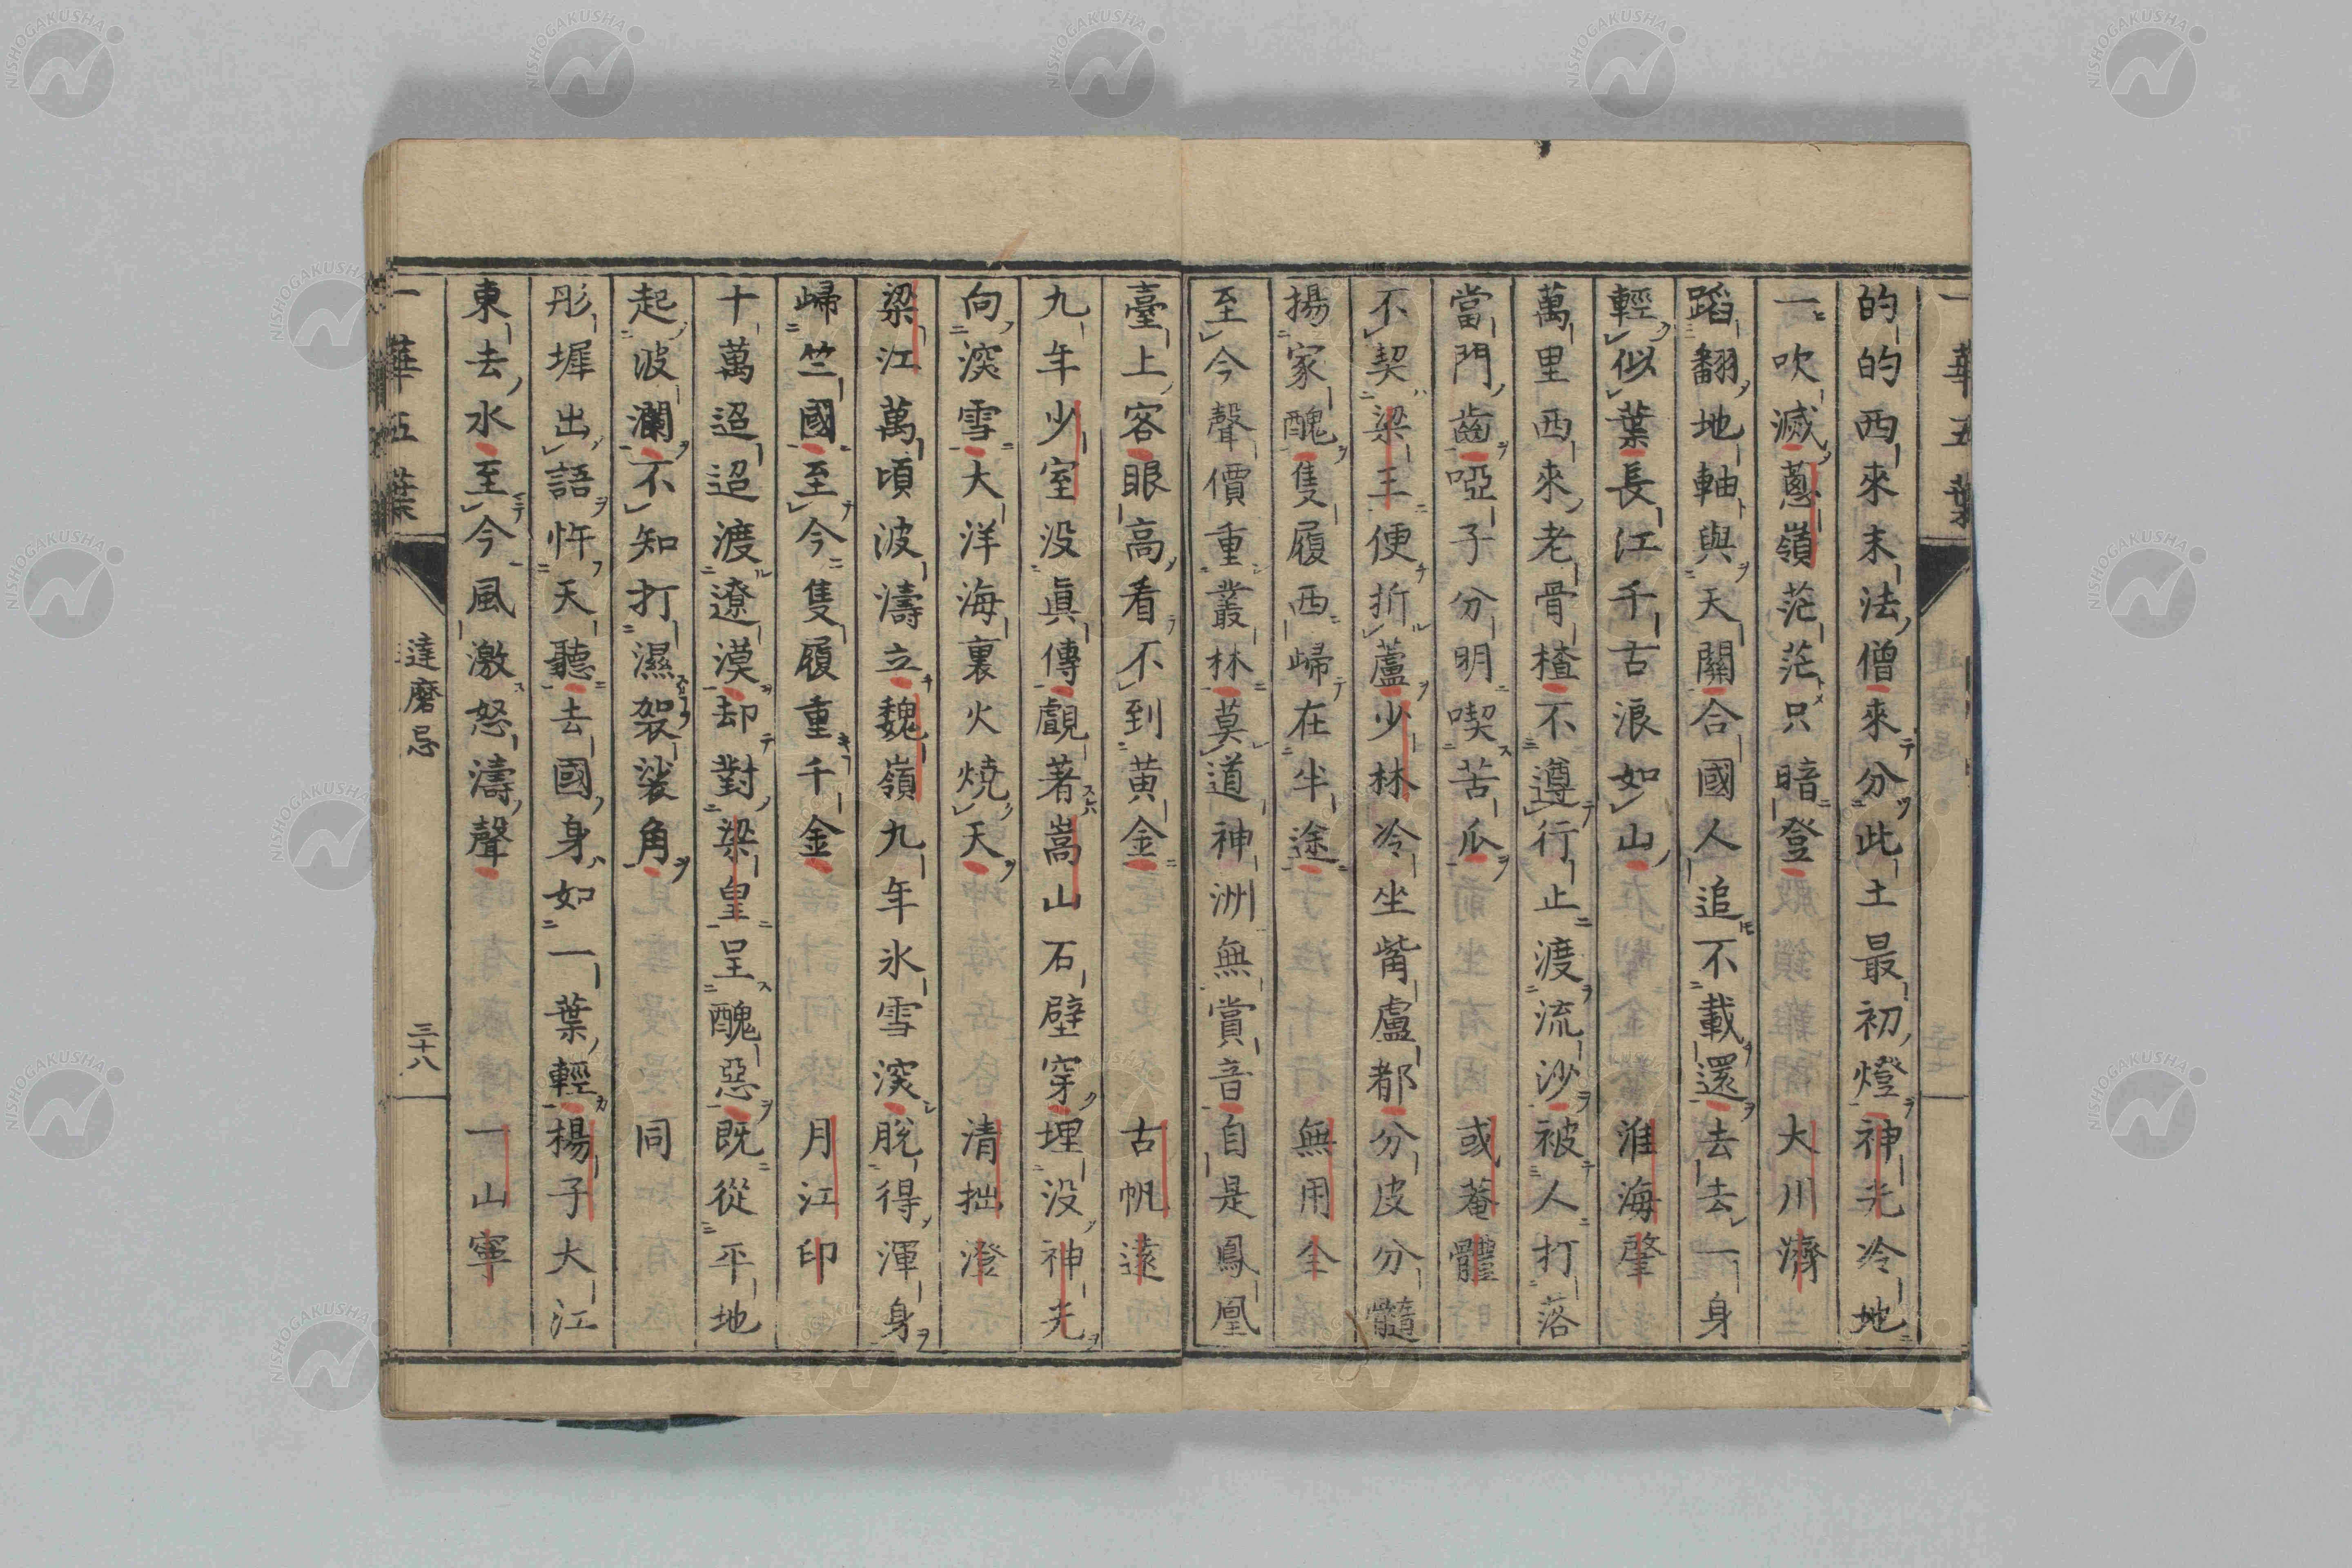 一華五葉
的的西來末法僧來分此土最初燈神光冷地
一吹滅葱嶺茫茫只暗登 大川濟
蹈翻地軸與天關合國人追不載還去去一身
輕似葉長江千古浪如山 淮海肇
萬里西來老骨楂不遵行止渡流沙被人打落
當門齒啞子分明喫苦瓜 或菴體
不契梁王便折蘆少林冷坐觜盧都分皮分髓
揚家醜隻履西歸在半途 無用全
至今聲價重叢林莫道神洲無賞音自是鳳凰
臺上客眼高看不到黃金 古帆遠
九年少室沒眞傳覰著嵩山石壁穿埋沒神光
向深雪大洋海裏火燒天 清拙澄
梁江萬頃波濤立魏嶺九年氷雪深脫得渾身
歸竺國至今隻履重千金 月江印
十萬迢迢渡遼漠却對梁皇呈醜惡既從平地
起波瀾不知打濕袈裟角 同
彤墀出語忤天聽去國身如一葉輕楊子大江
東去水至今風激怒濤聲 一山寧
一華五葉
達磨忌
三十八
NISHOGAKUSHA